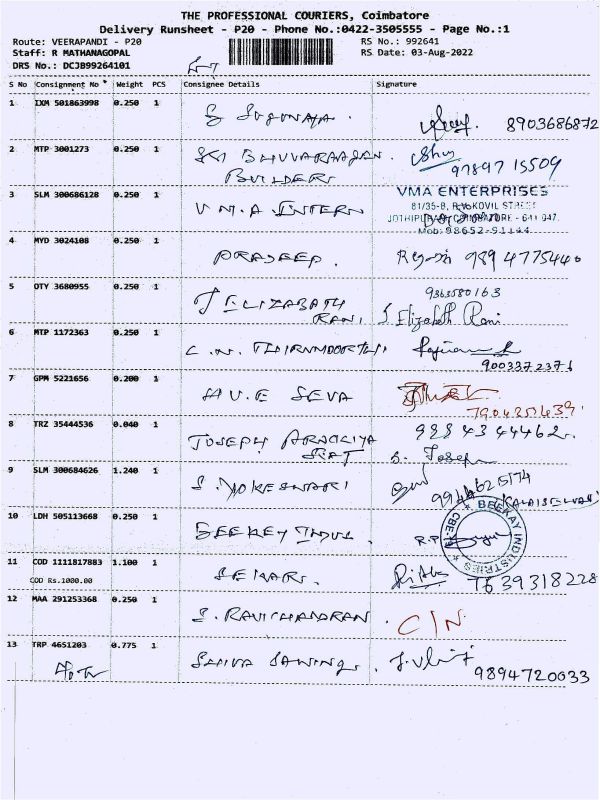 THE PROFESSIONAL COURIERS, Coimbatore
Delivery Runsheet - P20 - Phone No.:0422-3505555 - Page No.:1
Route: VEERAPANDI - P20 RS No.: 992641
Staff: R MATHANAGOPAL RS Date: 03-Aug-2022
DRS No.: DCJB99264101
S No Consignment No Weight PCS Consignee Details Signature
1 IXM 501863998 0.250 1 8903686872
2 MTP 3001273 0.250 1 SRI BHUVARAAGAN.
BUILDERS 97897 15509
3 SLM 300686128 0.250 1 V M.A INTERN VMA ENTERPRISES
81/35-B, KOVIL STREET
COIMBATORE - 641 047.
Mob: 98652-51144
4 MYD 3024108 0.250 1 PRADEEP. 989 4775440
5 OTY 3680955 0.250 1 J ELIZABATH
RANI. 9363580163
J. Elizabeth Rani
6 MTP 1172363 0.250 1 C.N. THIRUMOORTHI
9003372371
7 GPM 5221656 0.200 1 U.E SEVA
7904351439
8 TRZ 35444536 0.040 1 JOSEPH AROCKIYA
988 43 44462.
S. Joseph
9 SLM 300684626 1.240 1 S. YOKESWARI 9944625174
KALAISELVAN
10 LDH 505113668 0.250 1 BEEKEY INDUS. R.P
BEEKAY INDUSTRIES CBE-19
11 COD 1111817883 1.100 1 SEKAR. 76 39318228
COD Rs.1000.00
12 MAA 291253368 0.250 1 S. RAVICHANDRAN. C/N
13 TRP 4651203 0.775 1 SHIVA SAWING. 9894720033